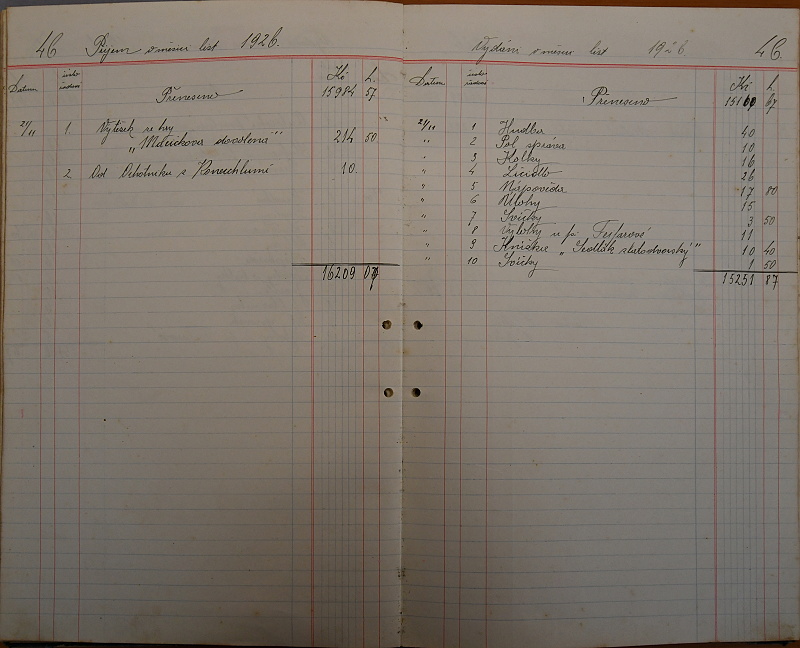 46 Příjem v měsíci list 1926.
Datum Kč h.
Přeneseno 15984 57
21/11 1. Výtěžek ze hry
„Mářičkova dovolená" 214 50
2. Od Ochotníků z Konecchlumí 10.
16209 07
Vydání v měsíci list 1926. 46.
Datum Kč h.
Přeneseno 67
21/11 1 Hudba 40
" 2 Pol. správa 10
" 3 Kolky 16
" 4 Líčidlo 26
" 5 Nápověda 17 80
" 6 Úlohy 15
" 7 Svíčky 3 50
" 8 Výlohy u fy 11
" 9 Knížka „Sedlák zlatodvorský" 10 40
" 10 Svíčky 1 50
15251 87